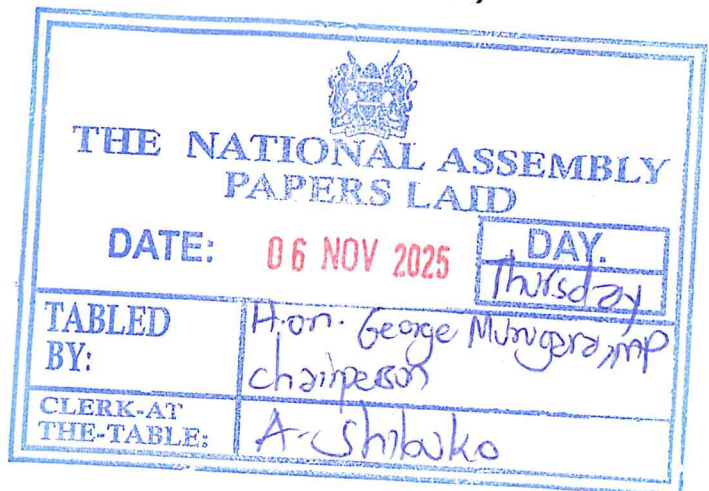 THE NATIONAL ASSEMBLY
PAPERS LAID
DATE: 06 NOV 2025
DAY.
Thursday
TABLED
BY:
Hon. George Murugara, MP
chairperson
CLERK-AT
THE-TABLE:
A. Shibuko